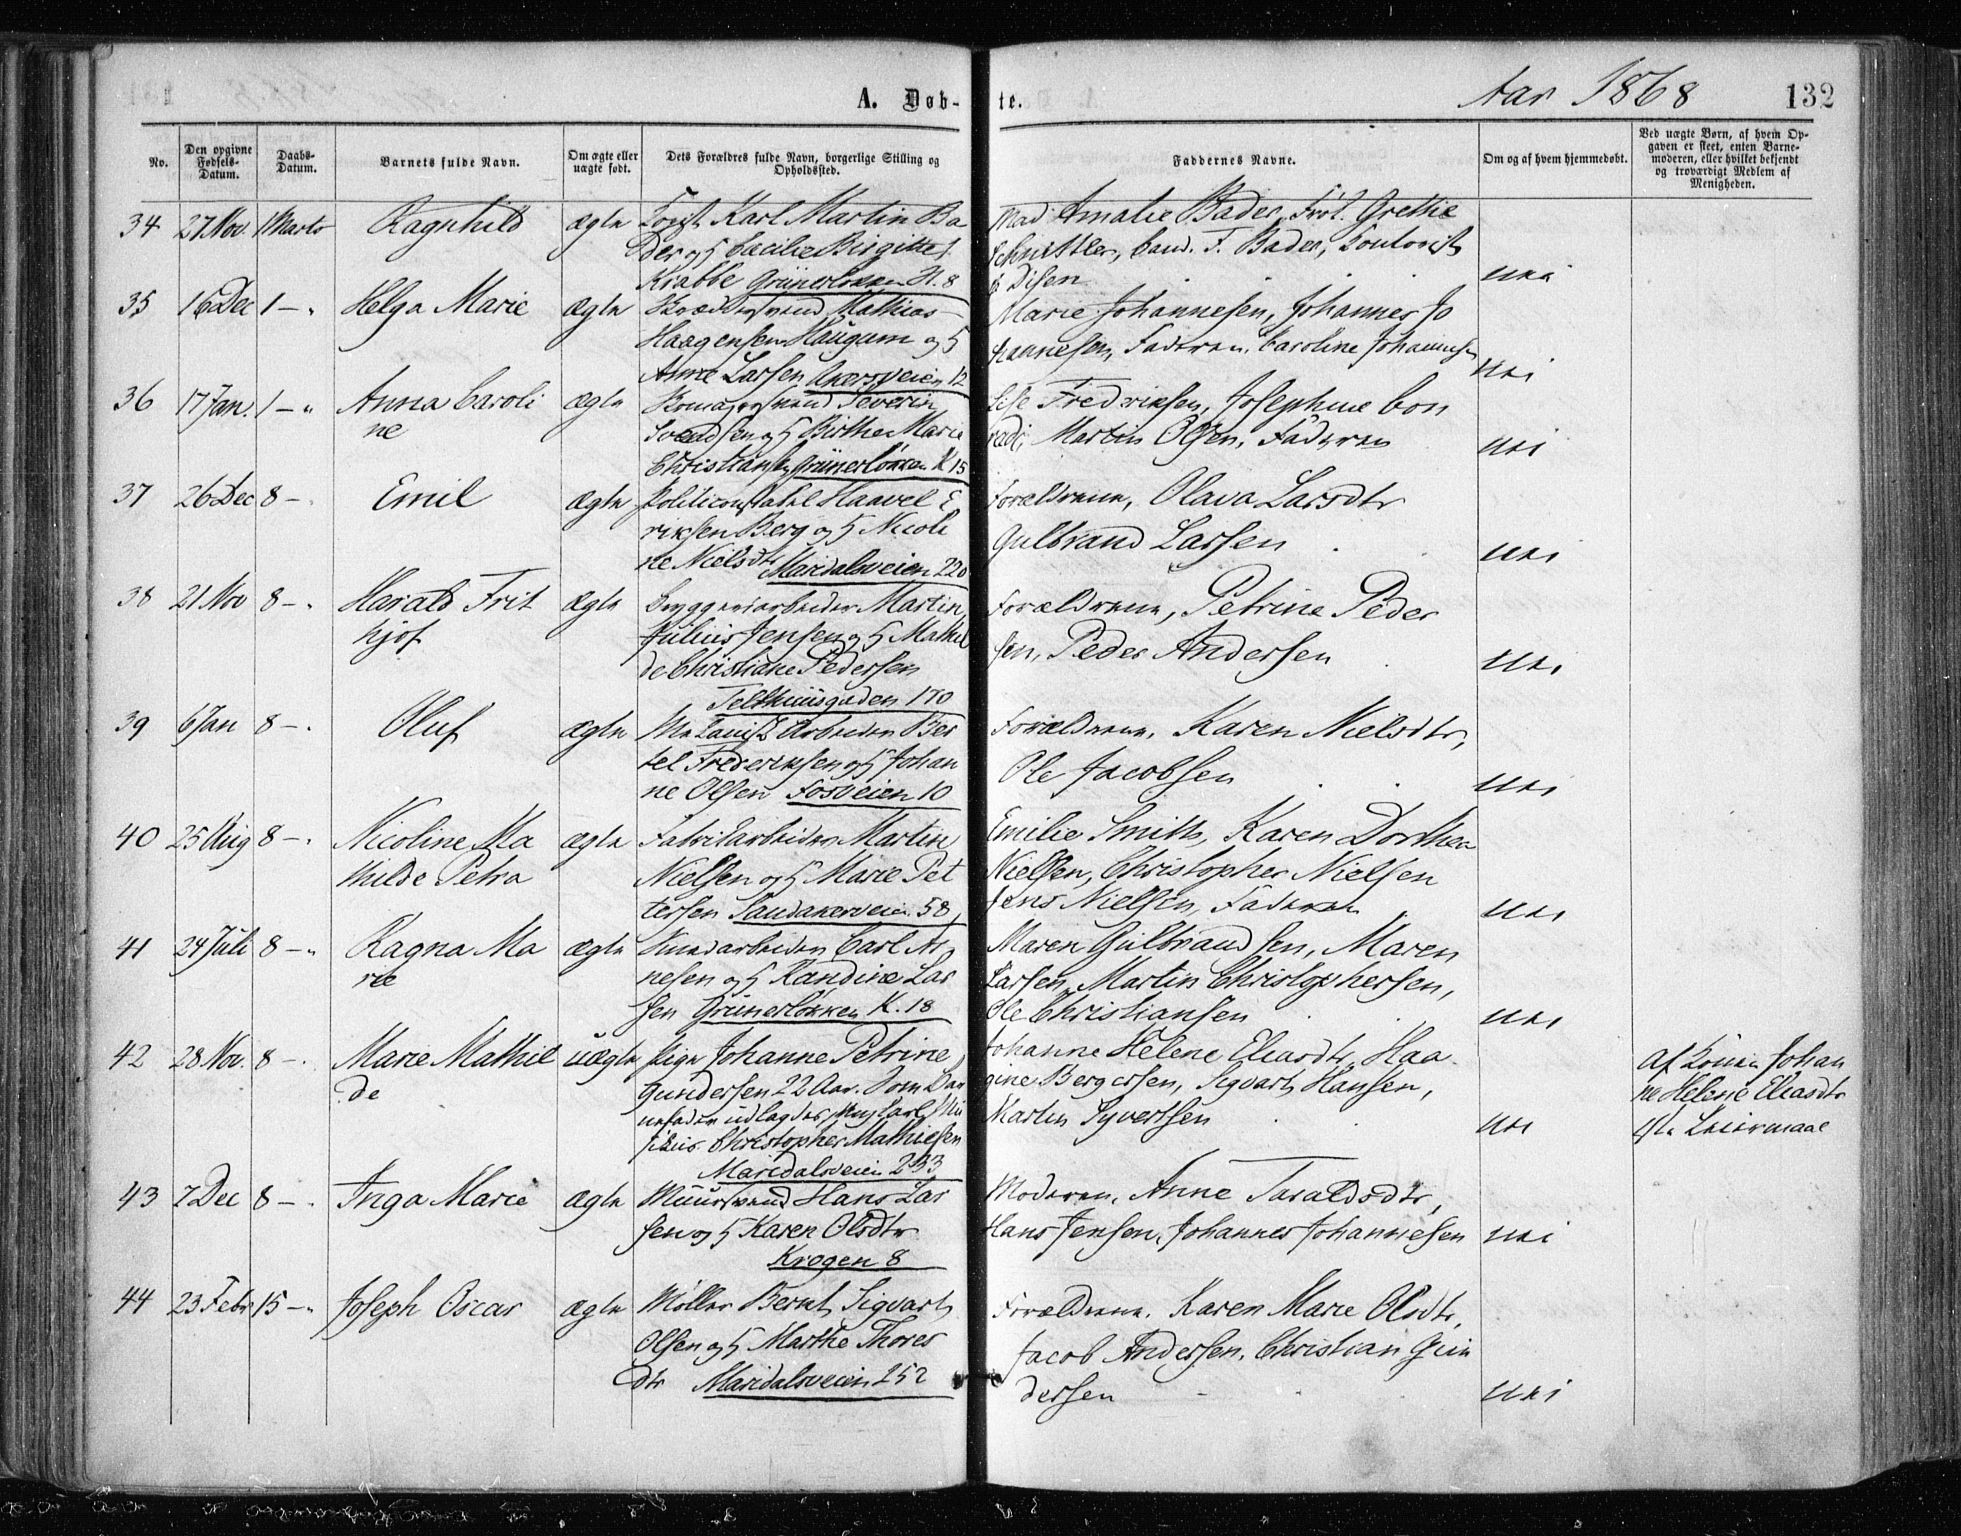 A. Døb-
te.
Aar 1868
132
No.
Den opgivne
Fødsels-
Datum.
Daabs-
Datum.
Barnets fulde Navn.
Om ægte eller
uægte født.
Dets Forældres fulde Navn, borgerlige Stilling og
Opholdssted.
Faddernes Navne.
Om og af hvem hjemmedøbt.
Ved uægte Børn, af hvem Op-
gaven er skeet, enten Barne-
moderen, eller hvilket bekjendt
og troværdigt Medlem af
Menigheden.
34 27 Nov 1 Marts Ragnhild ægte
Karl Martin Ba
der og H Cecilie Birgitte
Krabbe Grünerløkken H. 8
Mad Amalie Bader, Frøk. Grethe
Schnittler, Cand. F. Bader,
Disen
nei
35 16 Dec 1 - " Helga Marie ægte
Mathias
Haagensen Haugum og H
Anne Larsen Akersveien 12
Marie Johannesen, Johannes Jo
hannesen, Faderen, Caroline Johannesen
nei
36 17 Jan. 1 - " Anna Caroli
ne
ægte
Severin
Svendsen og H Birthe Marie
Christiansen Grünerløkken K 15
Lise Fredriksen, Josephine Con
radi, Martin Olsen, Faderen
nei
37 26 Dec 8 - " Emil ægte
Politiconstabel Haavel E
riksen Berg og H Nicoli
ne Nielsdtr Maridalsveien 220
Forældrene, Olava Larsdtr
Gulbrand Larsen
nei
38 21 Nov 8 - " Harald Frit
hjof
ægte
Bryggeriarbeider Martin
Julius Jensen og H Mathil
de Christiane Pedersen
Telthuusgaden 170
Forældrene, Petrine Peder
sen, Peder Andersen
nei
39 6 Jan 8 - " Oluf ægte
Mekanisk Arbeider Ber
tel Frederiksen og H Johan
ne Olsen Fosveien 10
Forældrene, Karen Nielsdtr,
Ole Jacobsen
nei
40 25 Aug 8 - " Nicoline Ma
thilde Petra
ægte
Fabrikarbeider Martin
Nielsen og H Marie Pet
tersen Sandakerveien 58
Emilie Smith, Karen Dorthea
Nielsen, Christopher Nielsen
Jens Nielsen, Faderen
nei
41 24 Juli 8 - " Ragna Ma
rie
ægte
Carl Ar
nesen og H Randine Lar
sen Grünerløkken K. 18
Maren Gulbrandsen, Maren
Larsen, Martin Christophersen,
Ole Christiansen
nei
42 28 Nov. 8 - " Marie Mathil
de
uægte
Pige Johanne Petrine
Gundersen 22 Aar. Som Bar
nefader udlagdes Ung Carl
Christopher Mathiesen
Maridalsveien 233
Johanne Helene Eliasdtr, Haa
gine Bergersen, Sigvart Hansen,
Martin Syvertsen
nei
af Konen Johan
ne Helene Eliasdtr
1ste Leiermaal
43 7 Dec 8 - " Inga Marie ægte
Muursvend Hans Lar
sen og H Karen Olsdtr
Krogen 8
Moderen, Anne Taraldsdtr,
Hans Jensen, Johannes Johannesen
nei
44 23 Febr 15 - " Joseph Oscar ægte
Møller Bernt Sigvart
Olsen og H Marthe Thores
dtr Maridalsveien 252
Forældrene, Karen Marie Olsdtr,
Jacob Andersen, Christian Gun
dersen
nei